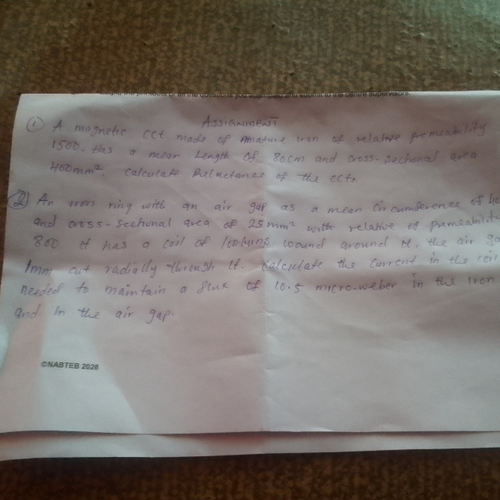 ASSIGNMENT
① A magnetic cct made of iron of relative permeability
1500. Has a mean length of 80cm and cross-sectional area
400mm² calculate Reluctance of the cct.
② An iron ring with an air gap as a mean circumference of
and cross-sectional area of 25mm² with relative of permeability
800 it has a coil of wound around it. the air ga
1mm cut radially through it. calculate the current in the coil
needed to maintain a flux of 10.5 micro-weber in the iron
and in the air gap.
©NABTEB 2026